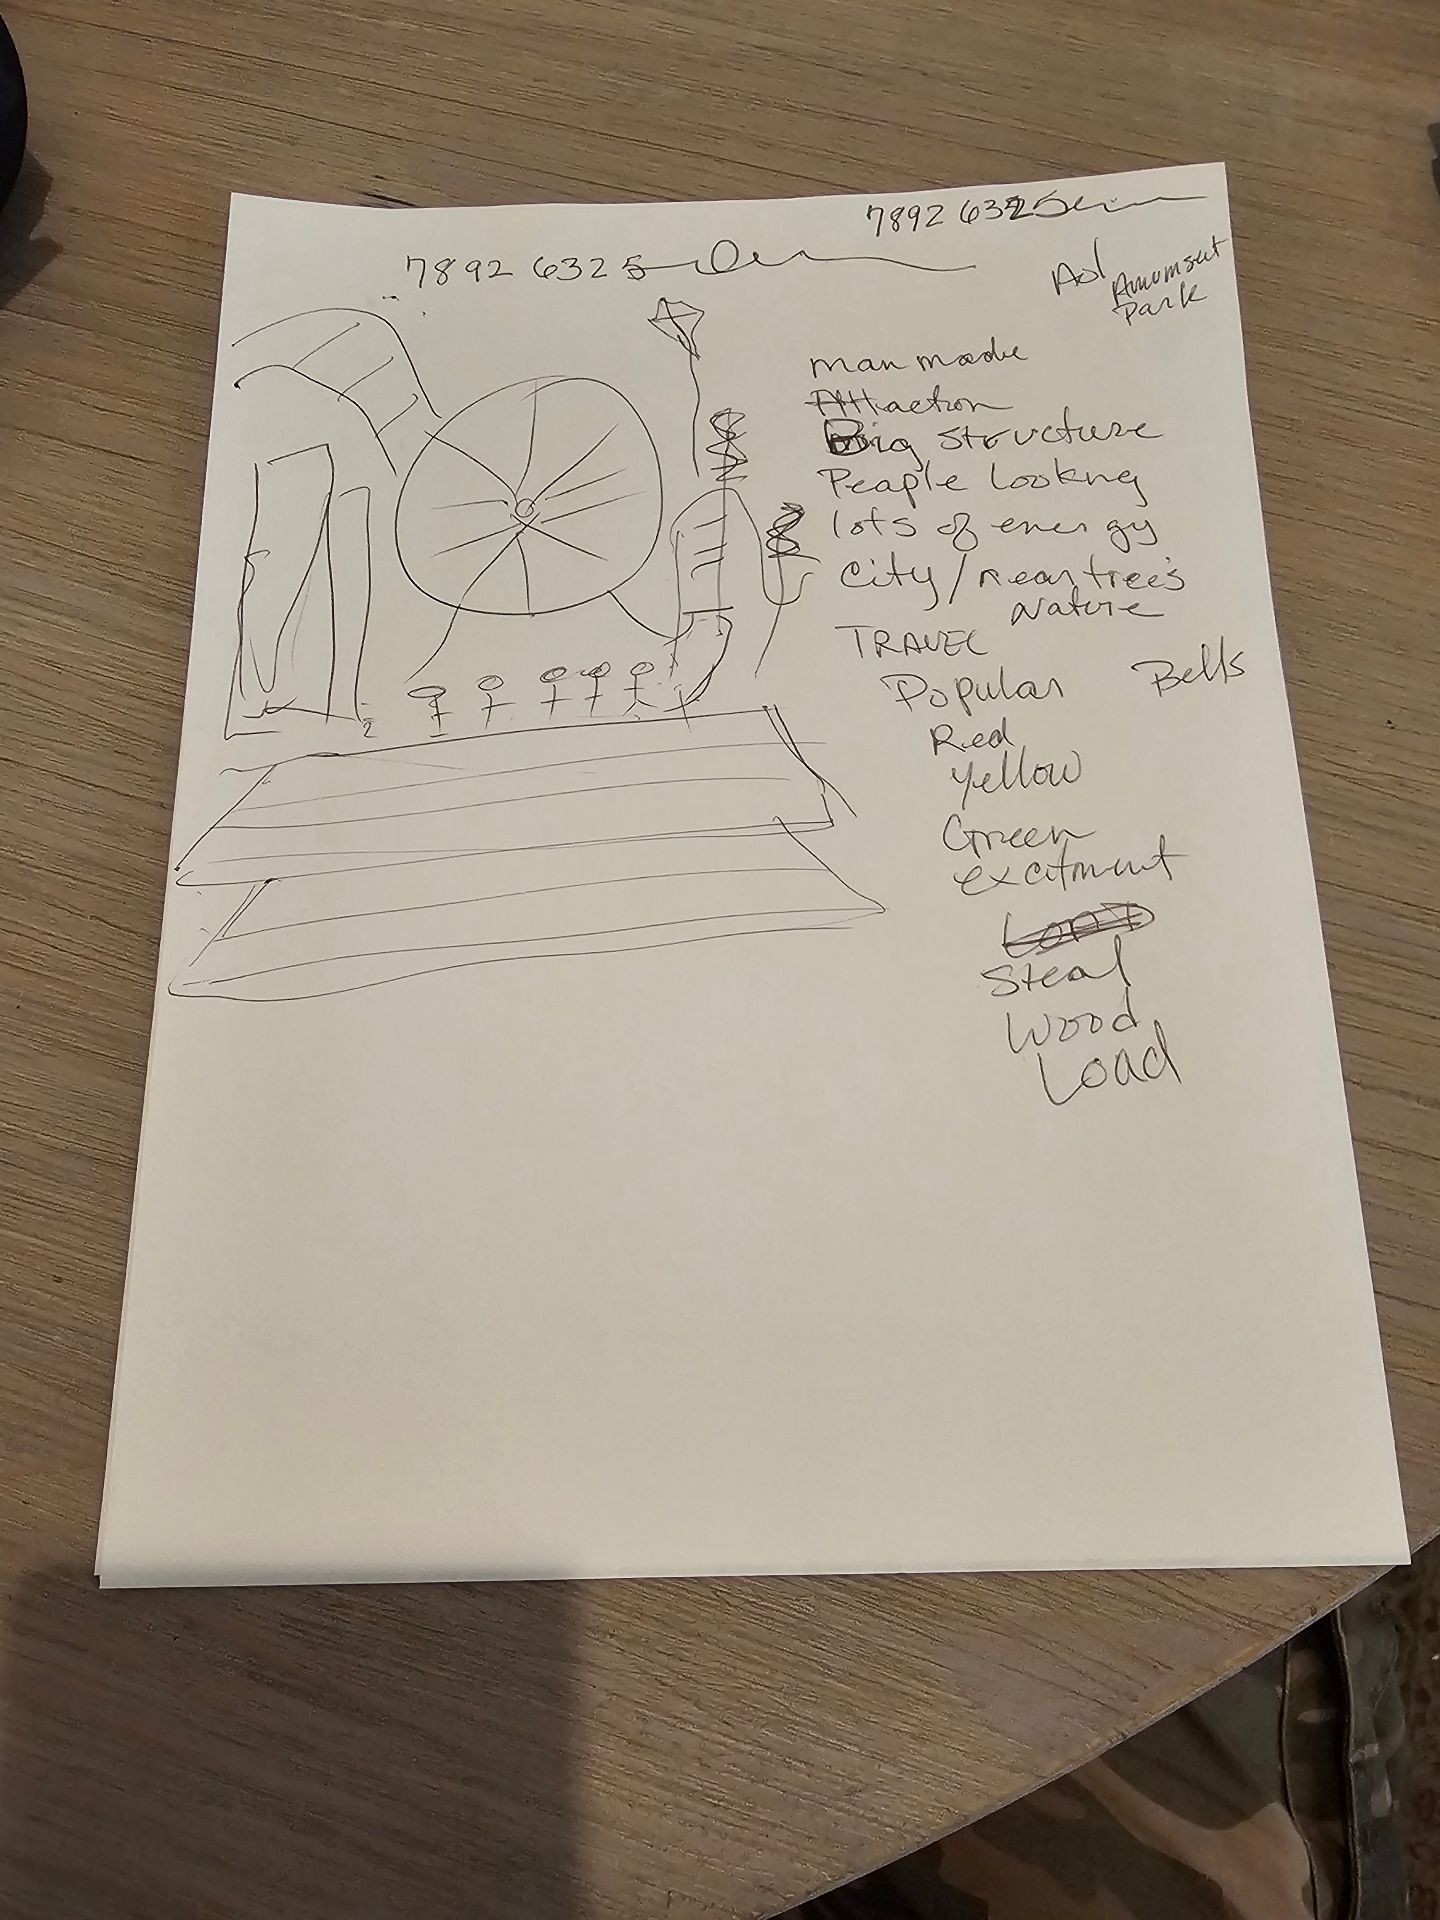 7892 6325
7892 6325
Aol Amumsut
Park
man made
Attraction
Big structure
People Lookng
lots of energy
City / near tree's
Nature
TRAVEL
Popular
Bells
Red
Yellow
Green
excitment
Steal
Wood
Load